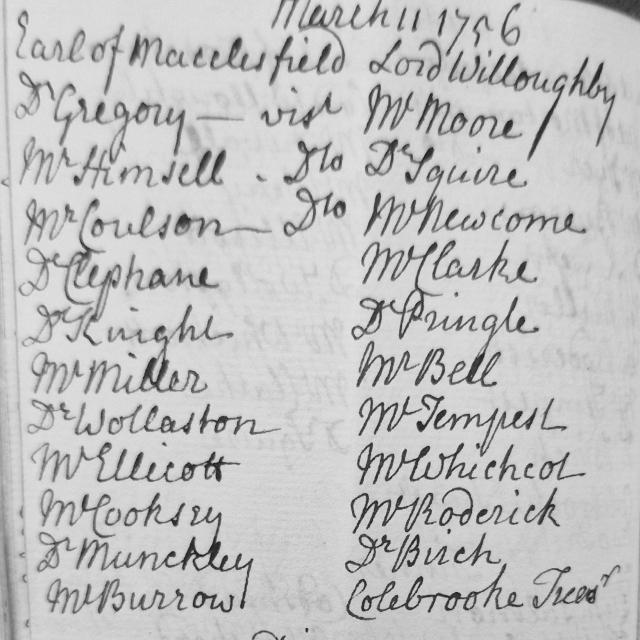 March 11 1756
Earl of Macclesfield Lord Willoughby
Dr Gregory — visr Mr Moore
Mr Himsell . Dto Dr Squire
Mr Coulson — Dto Mr Newcome
Dr Clephane Mr Clarke
Dr Knight Dr Pringle
Mr Miller Mr Bell
Dr Wollaston Mr Tempest
Mr Ellicott Mr Whichcot
Mr Cooksey Mr Roderick
Dr Munckley Dr Birch
Mr Burrow Colebrooke Treasr